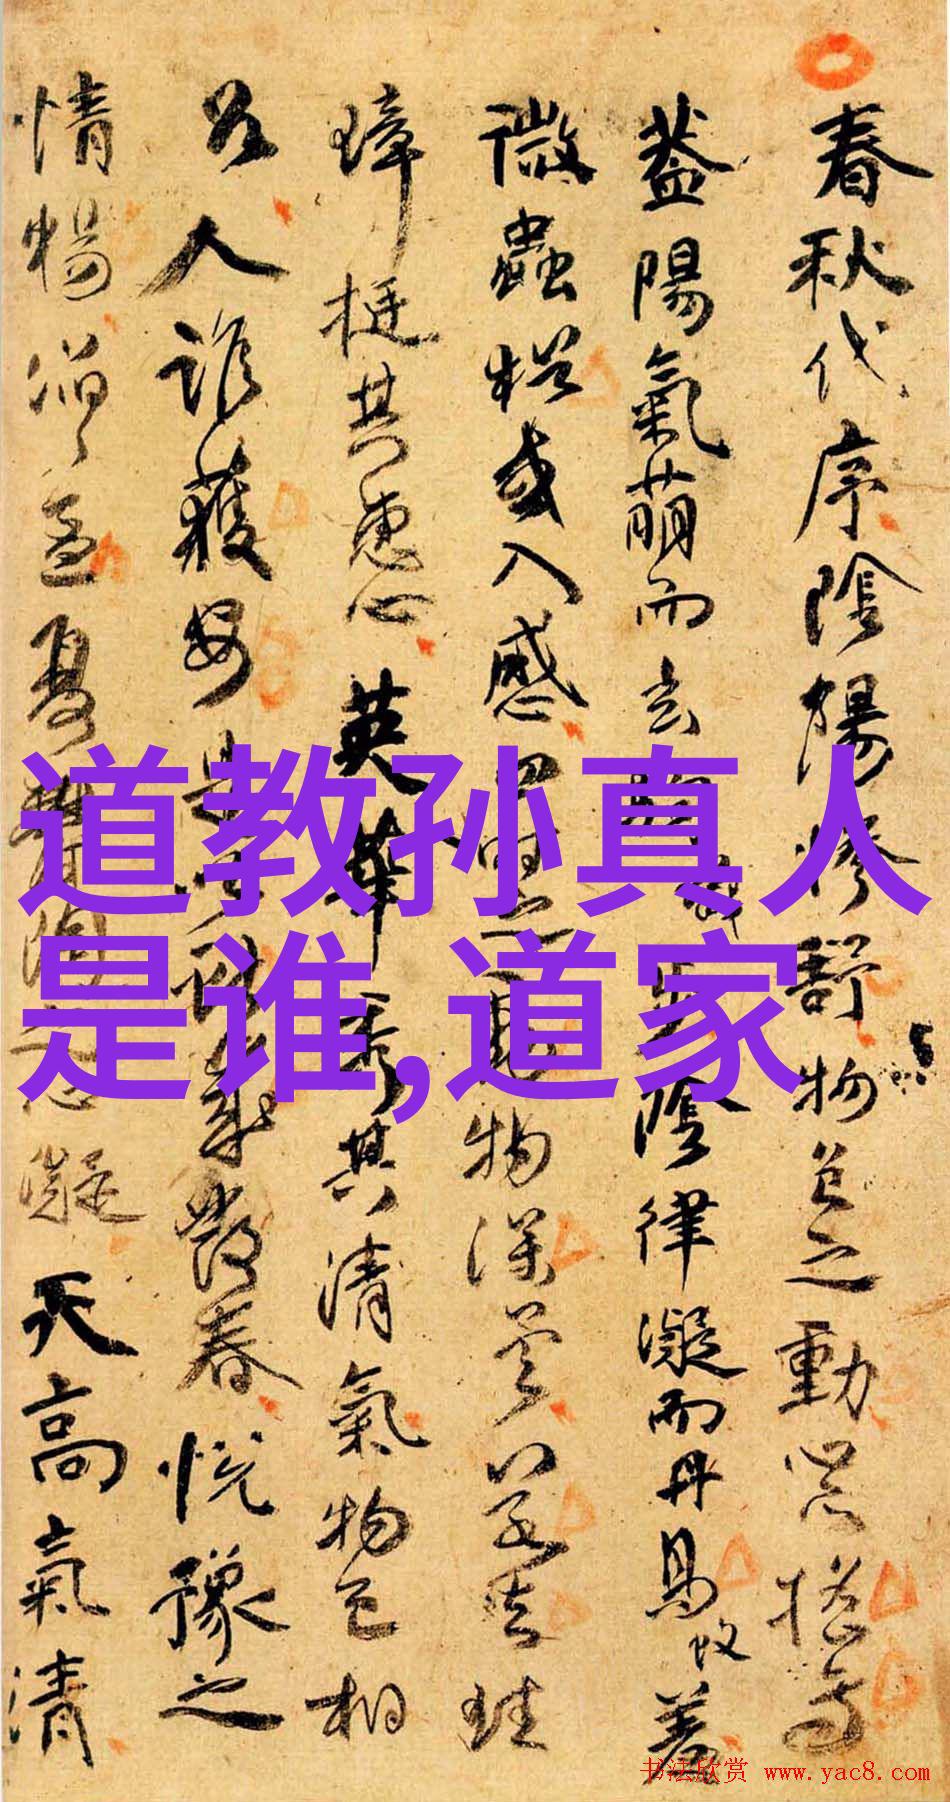 春秋代序陰陽慘舒物色之動心亦搖焉
蓋陽氣萌而玄陰律凝而丹鳥羞
微蟲猶或入感四時之動物深矣若夫珪
璋挺其惠心英華秀其清氣物色相
召人誰獲安是以獻歲發春悅豫之
情暢滔滔孟夏鬱陶之心凝天高氣清
道教孙真人
是谁,道家
书法欣赏 www.yac8.com